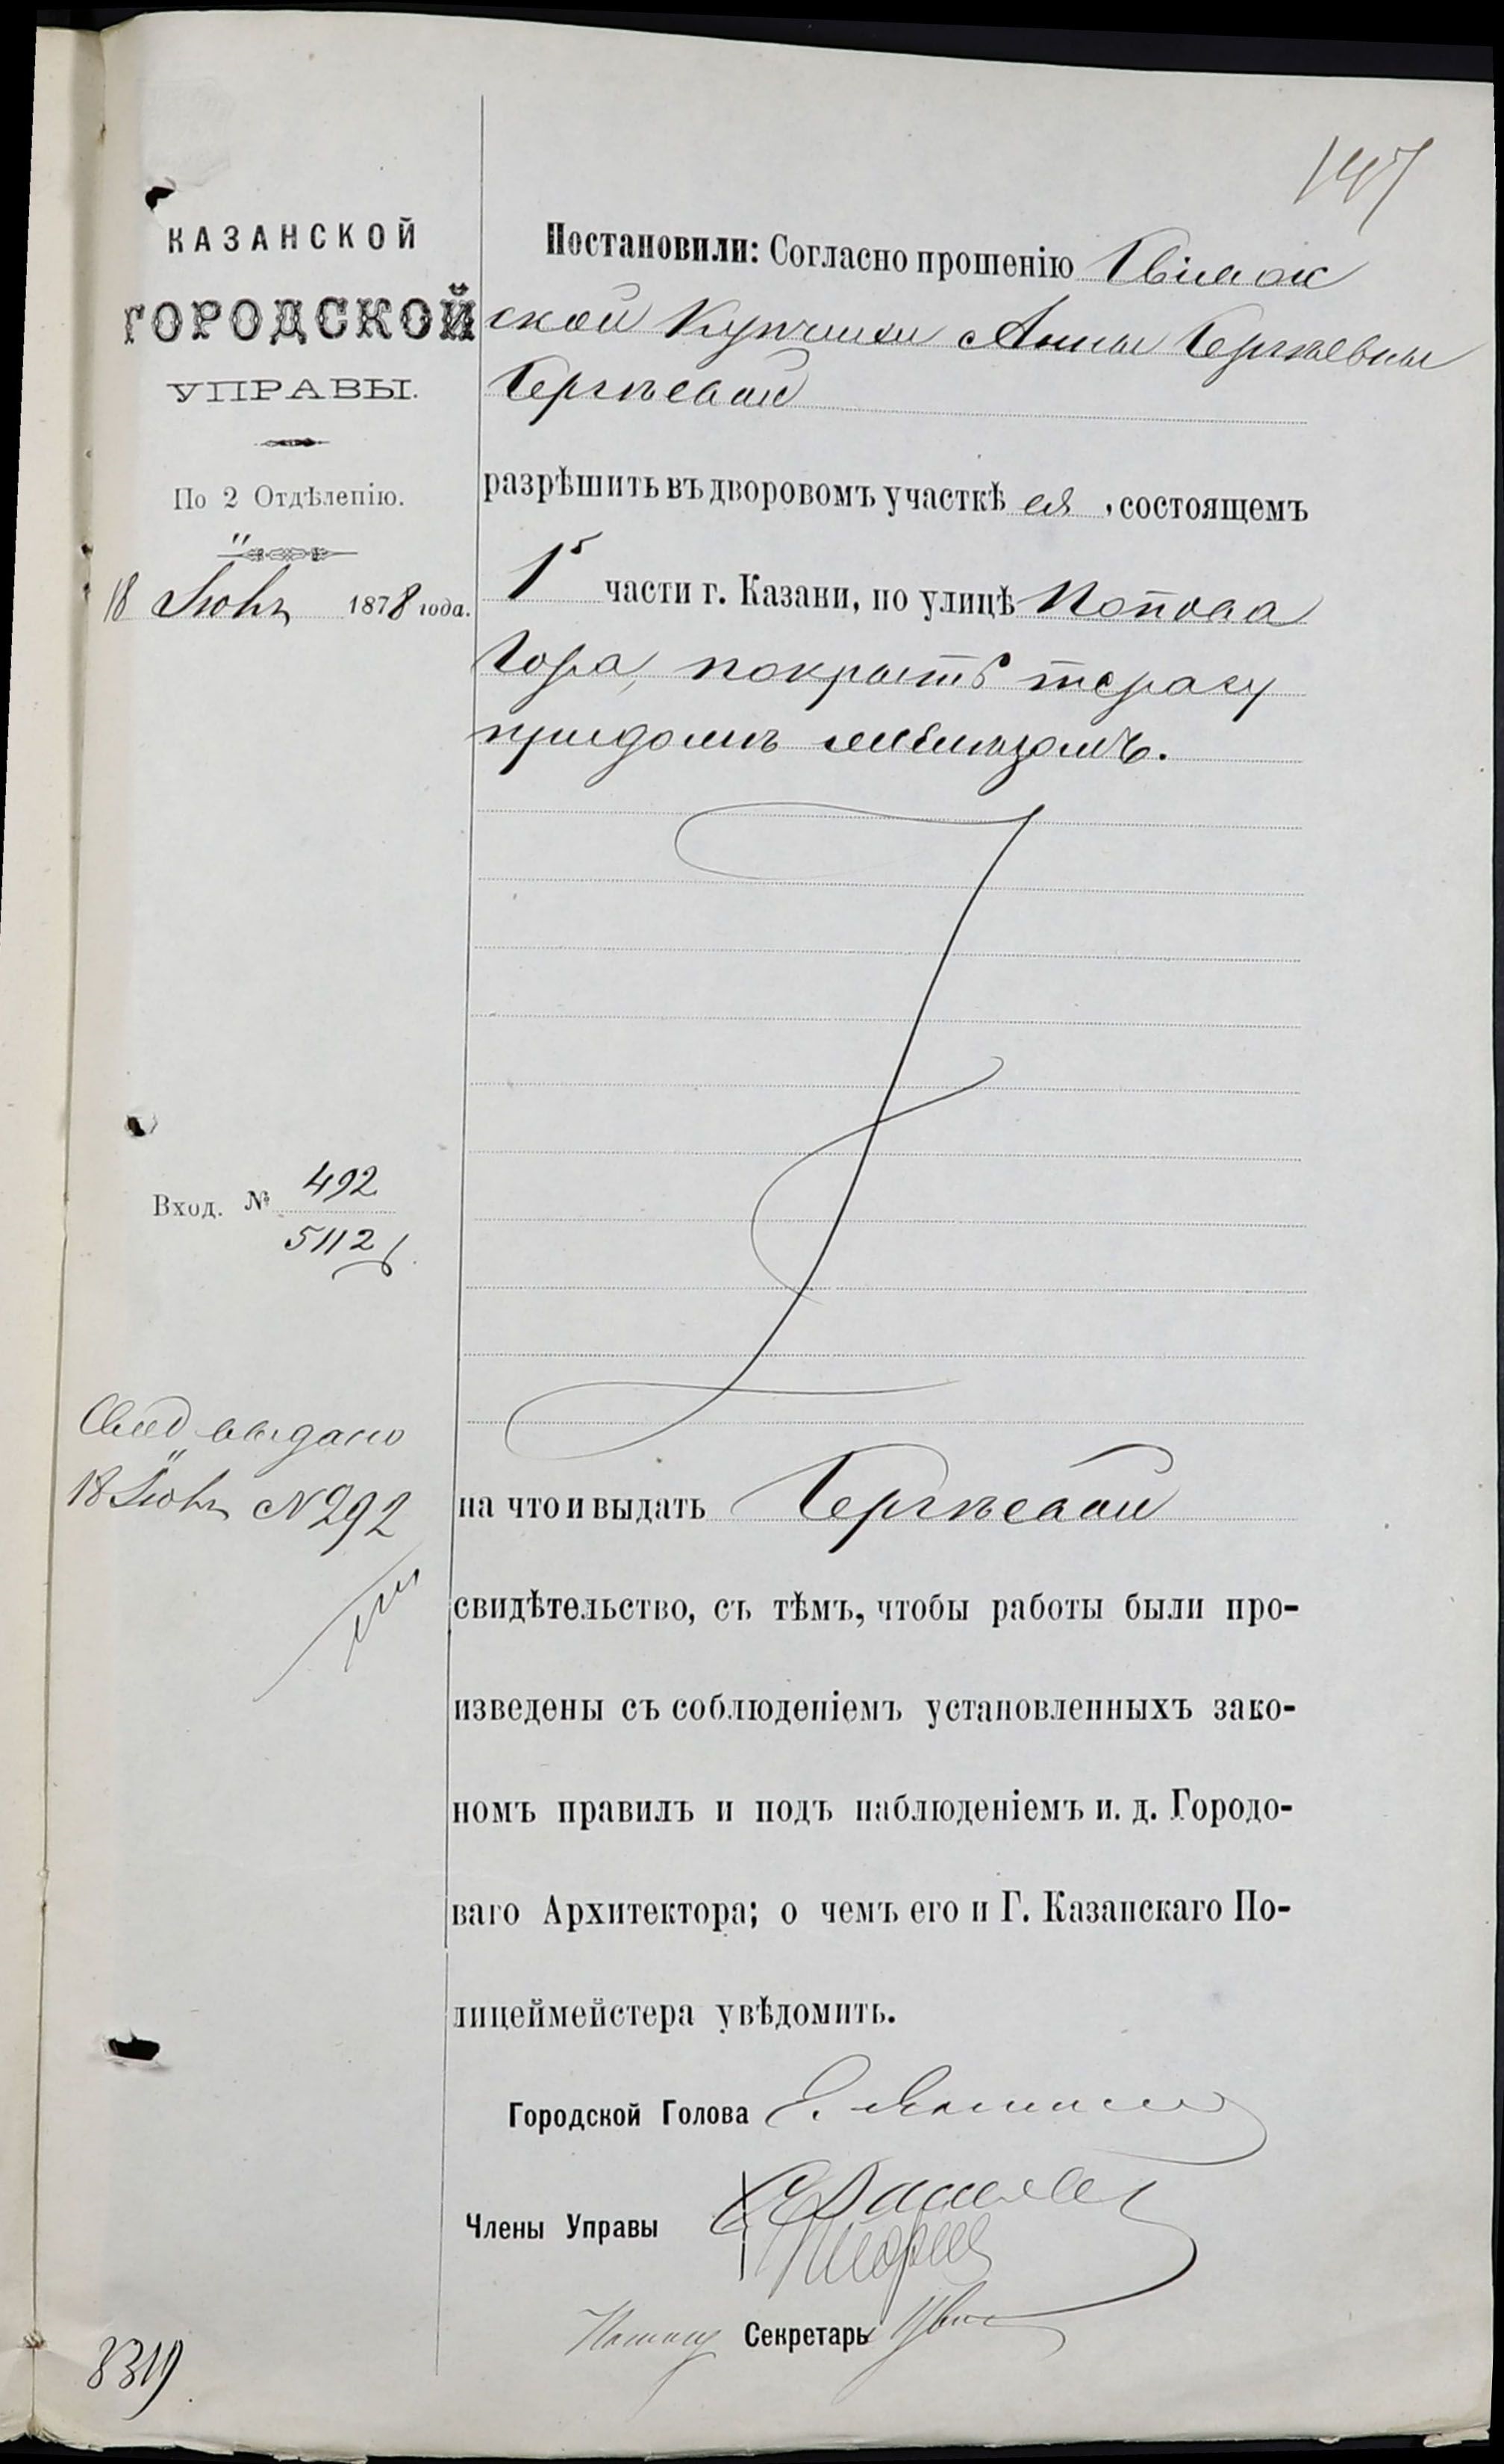 147
КАЗАНСКОЙ
ГОРОДСКОЙ
УПРАВЫ.
По 2 Отдѣленію.
18 Іюня 1878 года.
Постановили: Согласно прошенію
ской Купчихи Анны Сергѣевны
Сергѣевой
разрѣшить въ дворовомъ участкѣ ея, состоящемъ
1 части г. Казани, по улицѣ Попова
Гора, покрыть терасу
при домѣ желѣзомъ.
Вход. № 492
5112
Свид выдано
18 Іюня № 292
на что и выдать Сергѣевой
свидѣтельство, съ тѣмъ, чтобы работы были про-
изведены съ соблюденіемъ установленныхъ зако-
номъ правилъ и подъ наблюденіемъ и. д. Городо-
ваго Архитектора; о чемъ его и Г. Казанскаго По-
лицеймейстера увѣдомить.
Городской Голова
Члены Управы
Секретарь
8319